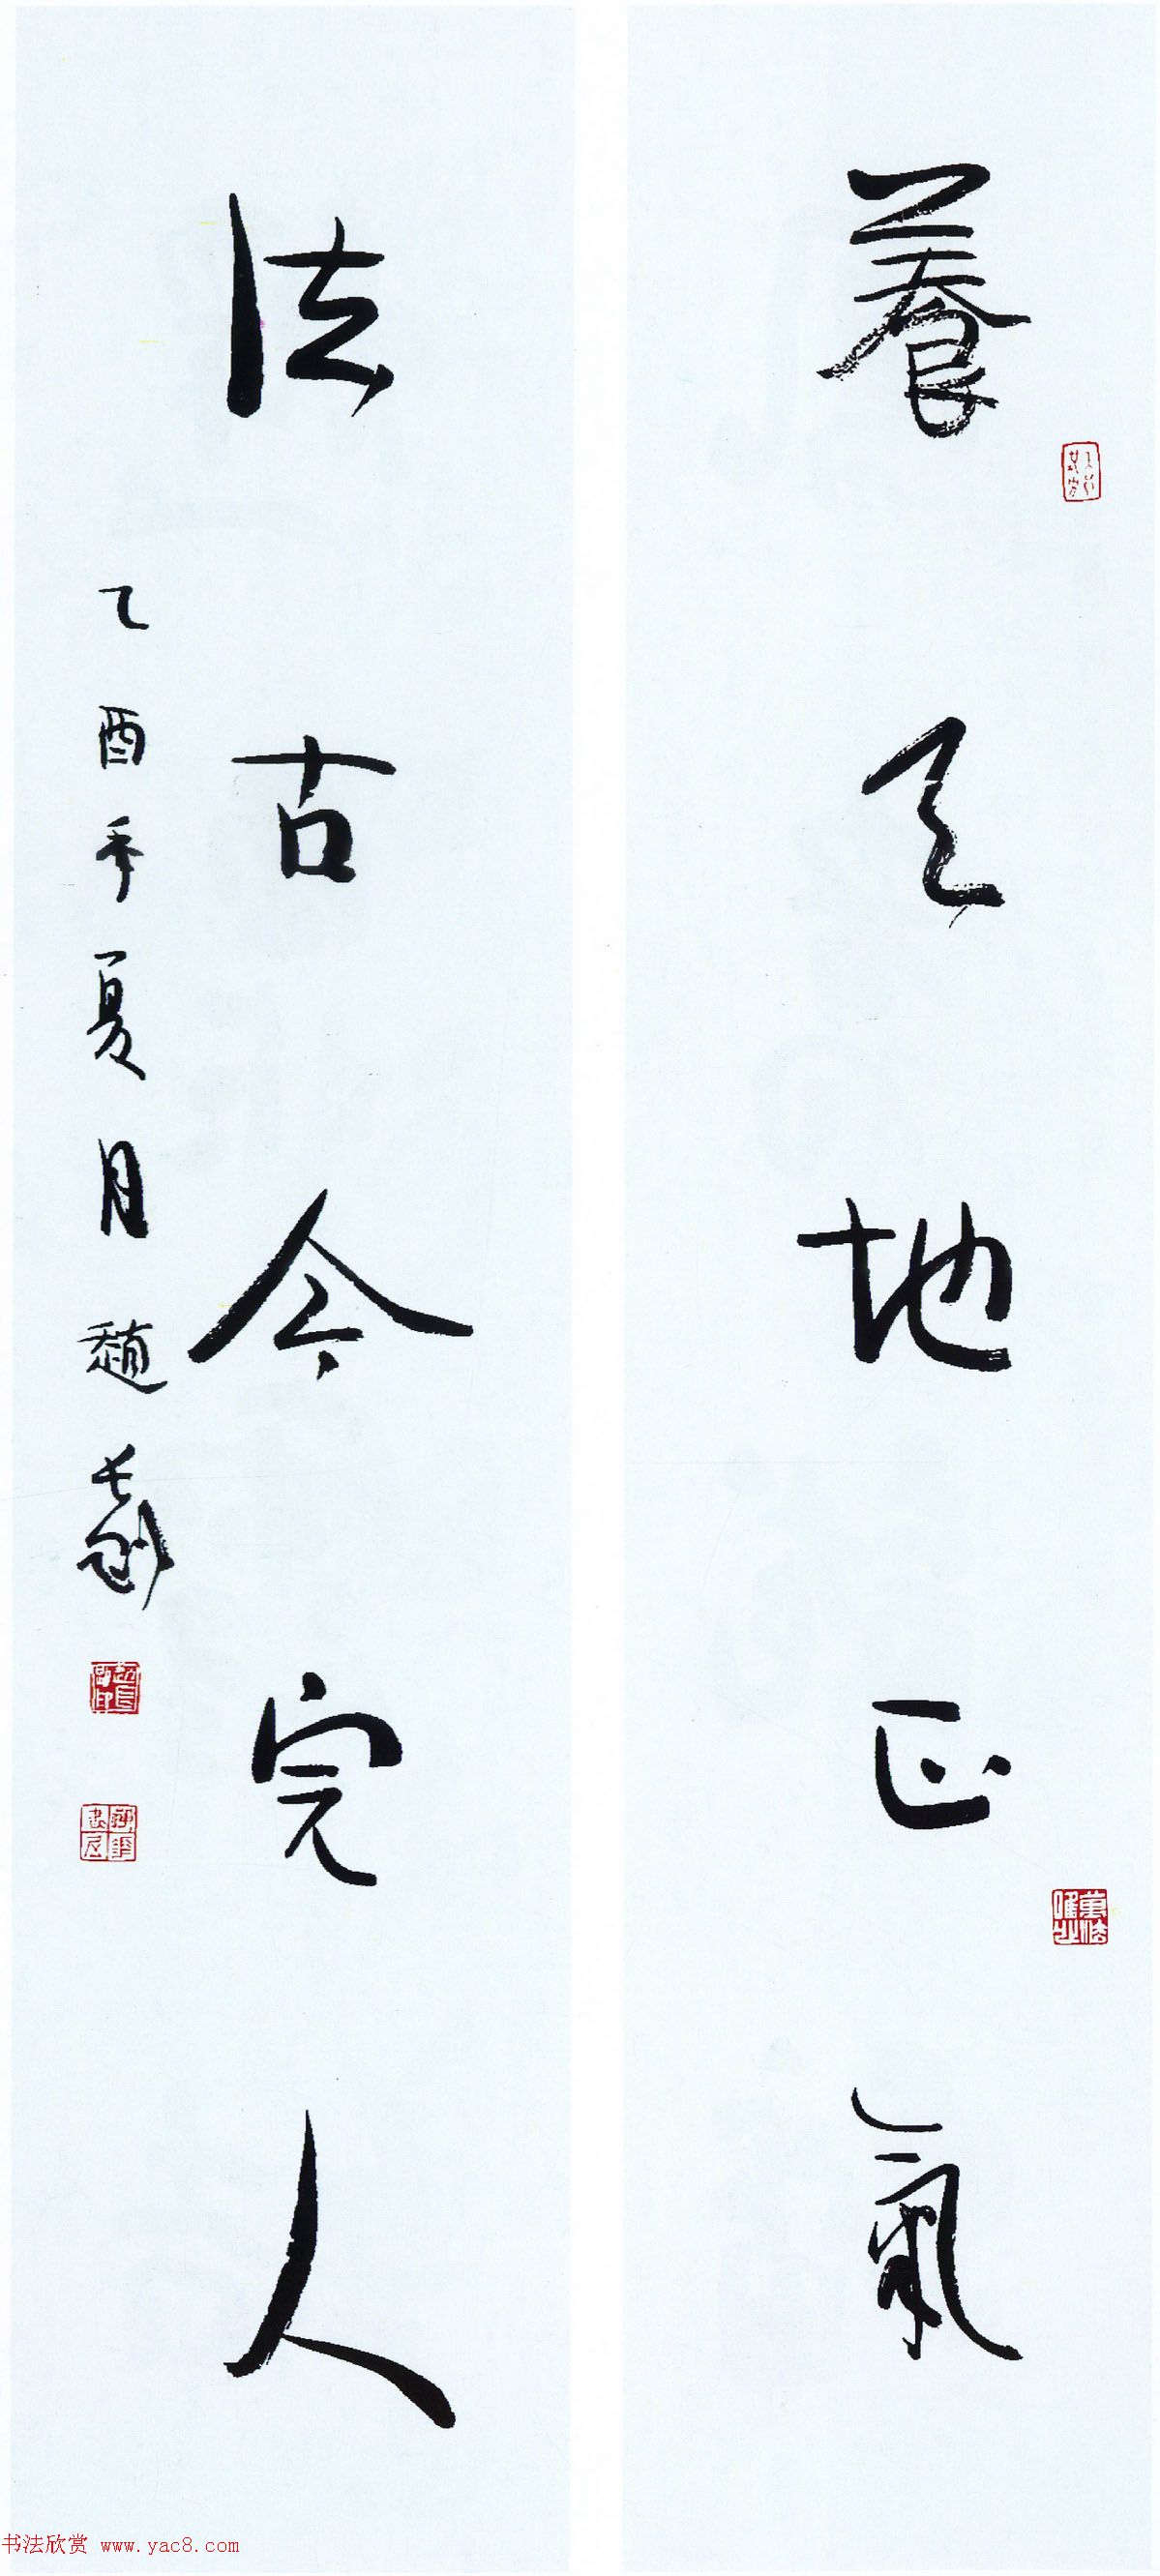 養天地正氣
法古今完人
乙酉年夏月趙長刚
書法欣赏 www.yac8.com